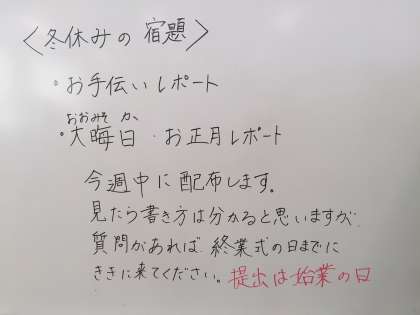 〈冬休みの宿題〉
・お手伝いレポート
おおみそか
・大晦日・お正月レポート
今週中に配布します。
見たら書き方は分かると思いますが
質問があれば、終業式の日までに
ききに来てください。提出は始業の日